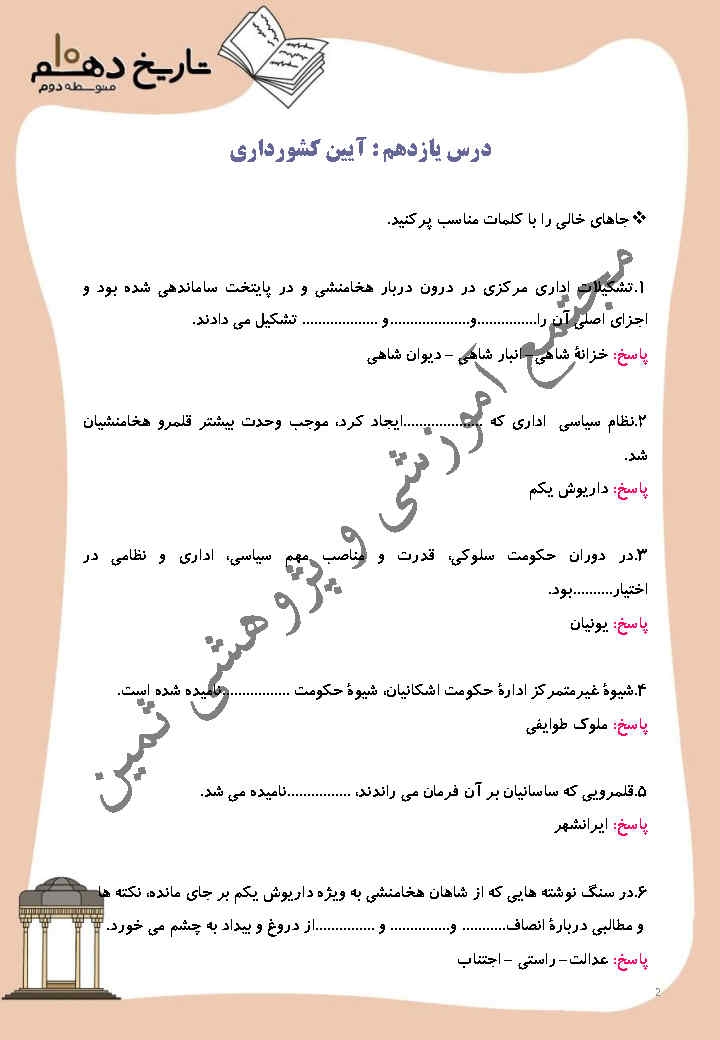 تاریخ دهم ۱۰
متوسطه دوم
درس یازدهم : آیین کشورداری
❖ جاهای خالی را با کلمات مناسب پرکنید.
۱.تشکیلات اداری مرکزی در درون دربار هخامنشی و در پایتخت ساماندهی شده بود و
اجزای اصلی آن را...............و....................و ................... تشکیل می دادند.
پاسخ: خزانهٔ شاهی– انبار شاهی – دیوان شاهی
۲.نظام سیاسی اداری که ....................ایجاد کرد، موجب وحدت بیشتر قلمرو هخامنشیان
شد.
پاسخ: داریوش یکم
۳.در دوران حکومت سلوکی، قدرت و مناصب مهم سیاسی، اداری و نظامی در
اختیار..........بود.
پاسخ: یونیان
۴.شیوهٔ غیرمتمرکز ادارهٔ حکومت اشکانیان، شیوهٔ حکومت .................نامیده شده است.
پاسخ: ملوک طوایفی
۵.قلمرویی که ساسانیان بر آن فرمان می راندند، ................نامیده می شد.
پاسخ: ایرانشهر
۶.در سنگ نوشته هایی که از شاهان هخامنشی به ویژه داریوش یکم بر جای مانده، نکته ها
و مطالبی دربارهٔ انصاف........... و............... و ...............از دروغ و بیداد به چشم می خورد.
پاسخ: عدالت– راستی – اجتناب
مجتمع آموزشی و پژوهشی ثمین
2